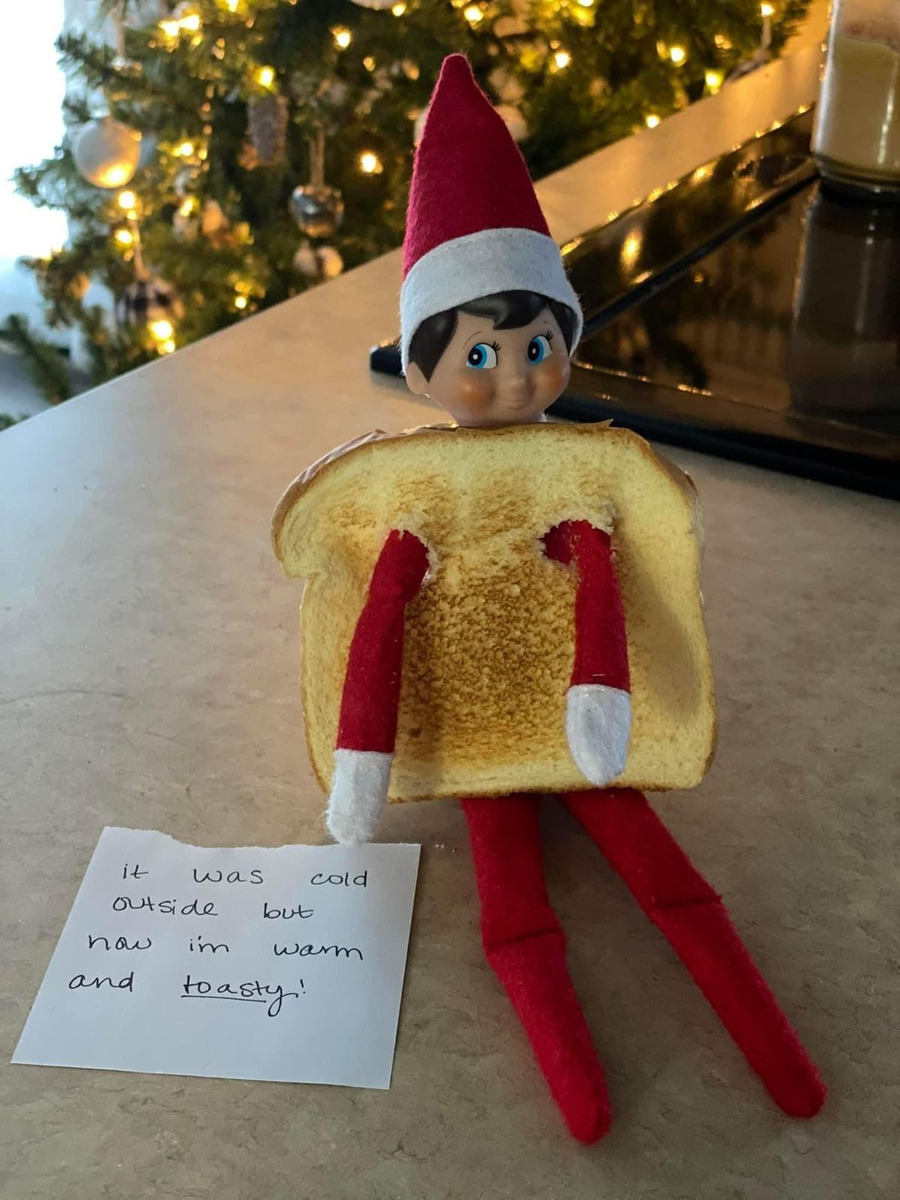 it was cold
outside but
now i'm warm
and toasty!